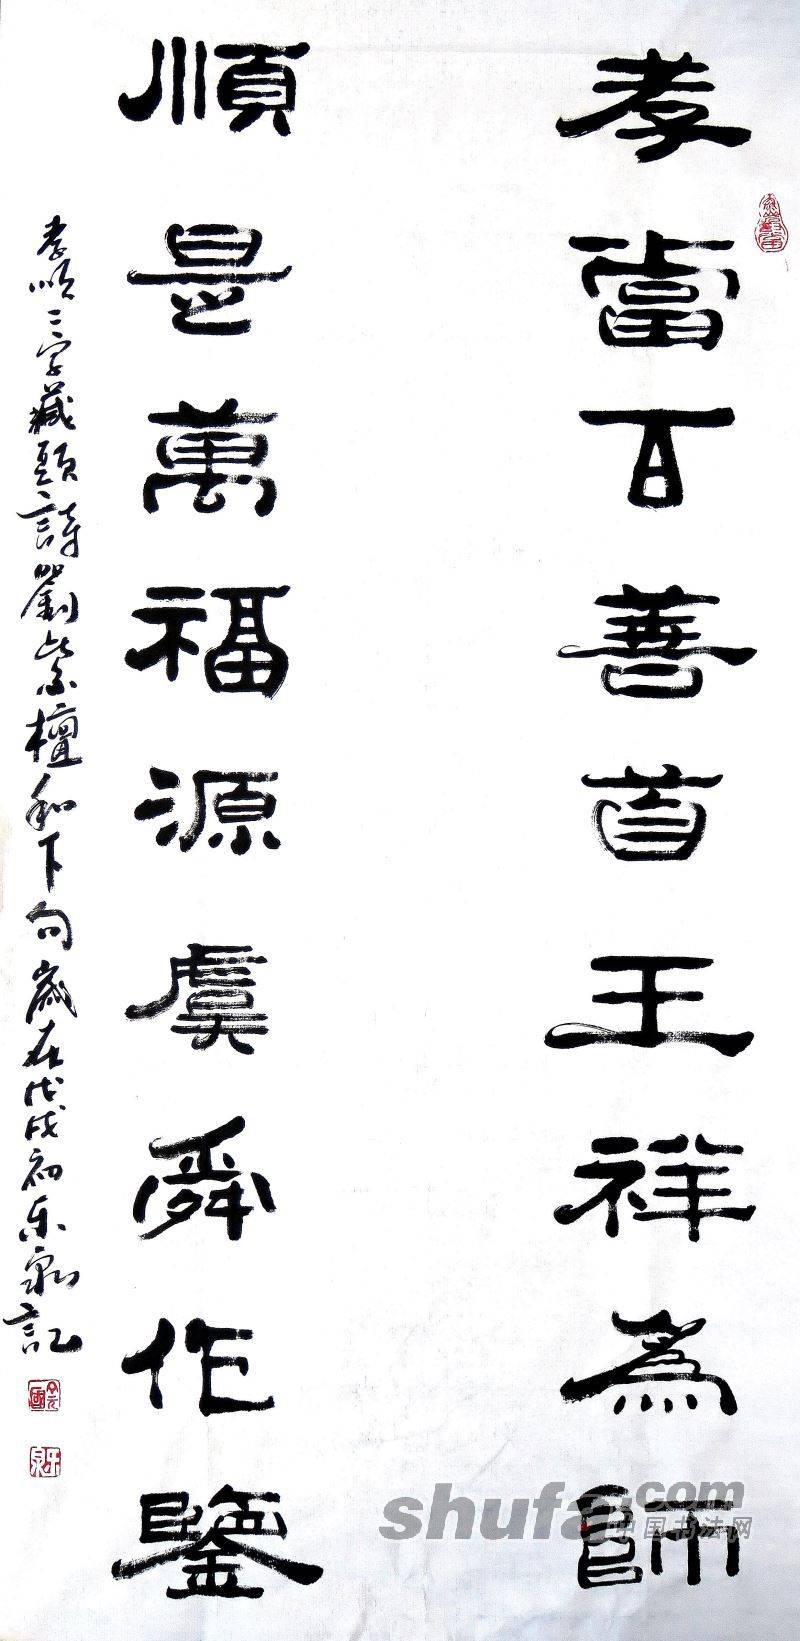 孝當百善首王祥為師
順是萬福源虞舜作鑒
孝順二字藏頭詩劉紫檀和下句歲在戊戌初東泉記
shufa.com
中国书法网